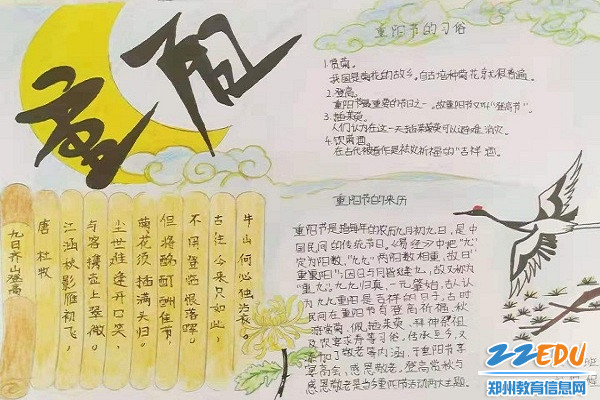 重阳
重阳节的习俗
1.赏菊。
我国是菊花的故乡。自古培种菊花就很普遍。
2.登高。
重阳节最重要的节日之一。故重阳节又叫"登高节"。
3.插茱萸。
人们认为在这一天插茱萸可以避难消灾。
4.饮菊酒。
在古代被看作是祛灾祈福的"吉祥酒。
重阳节的来历
重阳节是指每年的农历九月初九日,是中
国民间的传统节日。《易经》中把"九"
定为阳数,"九九"两阳数相重,故曰"
重阳";因日与月皆逢九,故又称为"
重九"。九九归真,一元肇始,古人认
为九九重阳是吉祥的日子。古时
民间在重阳节有登高祈福、秋
游赏菊、佩插茱萸、拜神祭祖
及饮宴求寿等习俗。传承至今,又
添加了敬老等内涵,于重阳节享
宴高会,感恩敬老。登高赏秋与
感恩敬老是当今重阳节活动两大主题。
九日齐山登高
唐 杜牧
江涵秋影雁初飞,
与客携壶上翠微。
尘世难逢开口笑,
菊花须插满头归。
但将酩酊酬佳节,
不用登临恨落晖。
古往今来只如此,
牛山何必独沾衣。
22EDU
郑州教育信息网